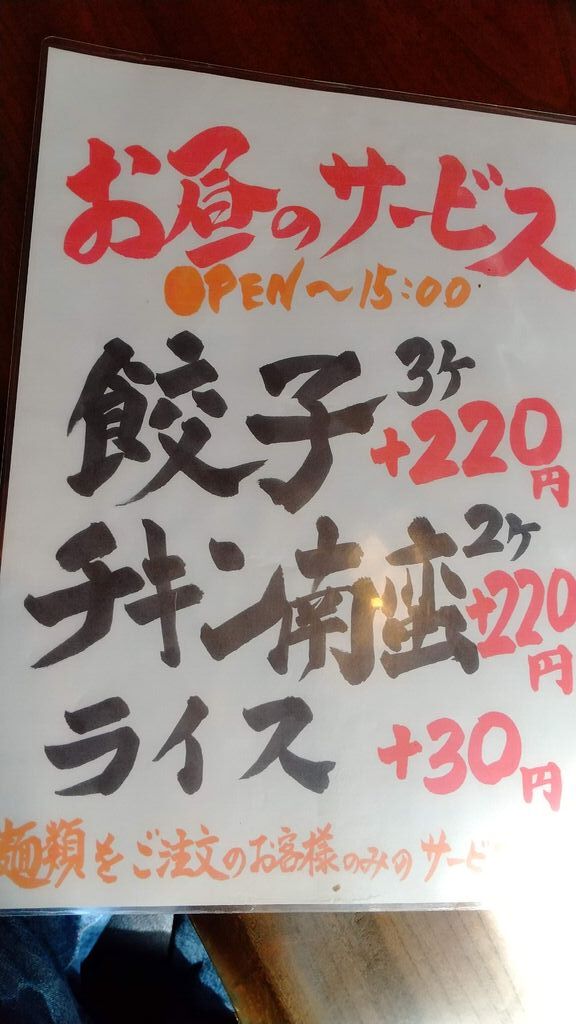 お昼のサービス
OPEN～15:00
餃子 3ケ +220円
チキン南蛮 2ケ +220円
ライス +30円
麺類をご注文のお客様のみのサービ